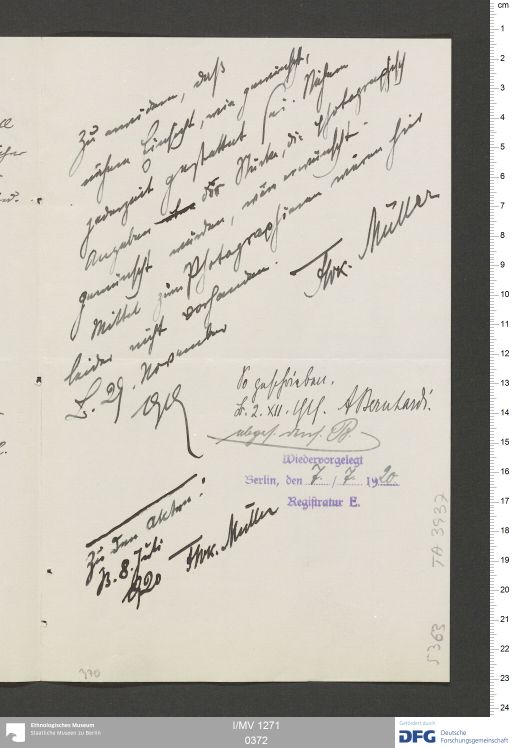 zu erwidern, daß
nähere Einsicht, wie gewünscht,
jederzeit gestattet sei. Nähere
Angaben der Stücke, die photographisch
gewünscht würden, wäre erwünscht.
Mittel zum Photographieren wären hier
leider nicht vorhanden.
FWK. Müller
B. 29. November
1919
So geschrieben.
B. 2. XII. 1919. A Bernhardi.
abges. B
Wiedervorgelegt
Berlin, den 7. / 7. 1920.
Registratur E.
Zu den Akten!
B. 8. Juli
1920
FWK. Müller
TA 3937
5363
370
Ethnologisches Museum
Staatliche Museen zu Berlin
I/MV 1271
0372
Gefördert durch
DFG Deutsche
Forschungsgemeinschaft
cm
1
2
3
4
5
6
7
8
9
10
11
12
13
14
15
16
17
18
19
20
21
22
23
24